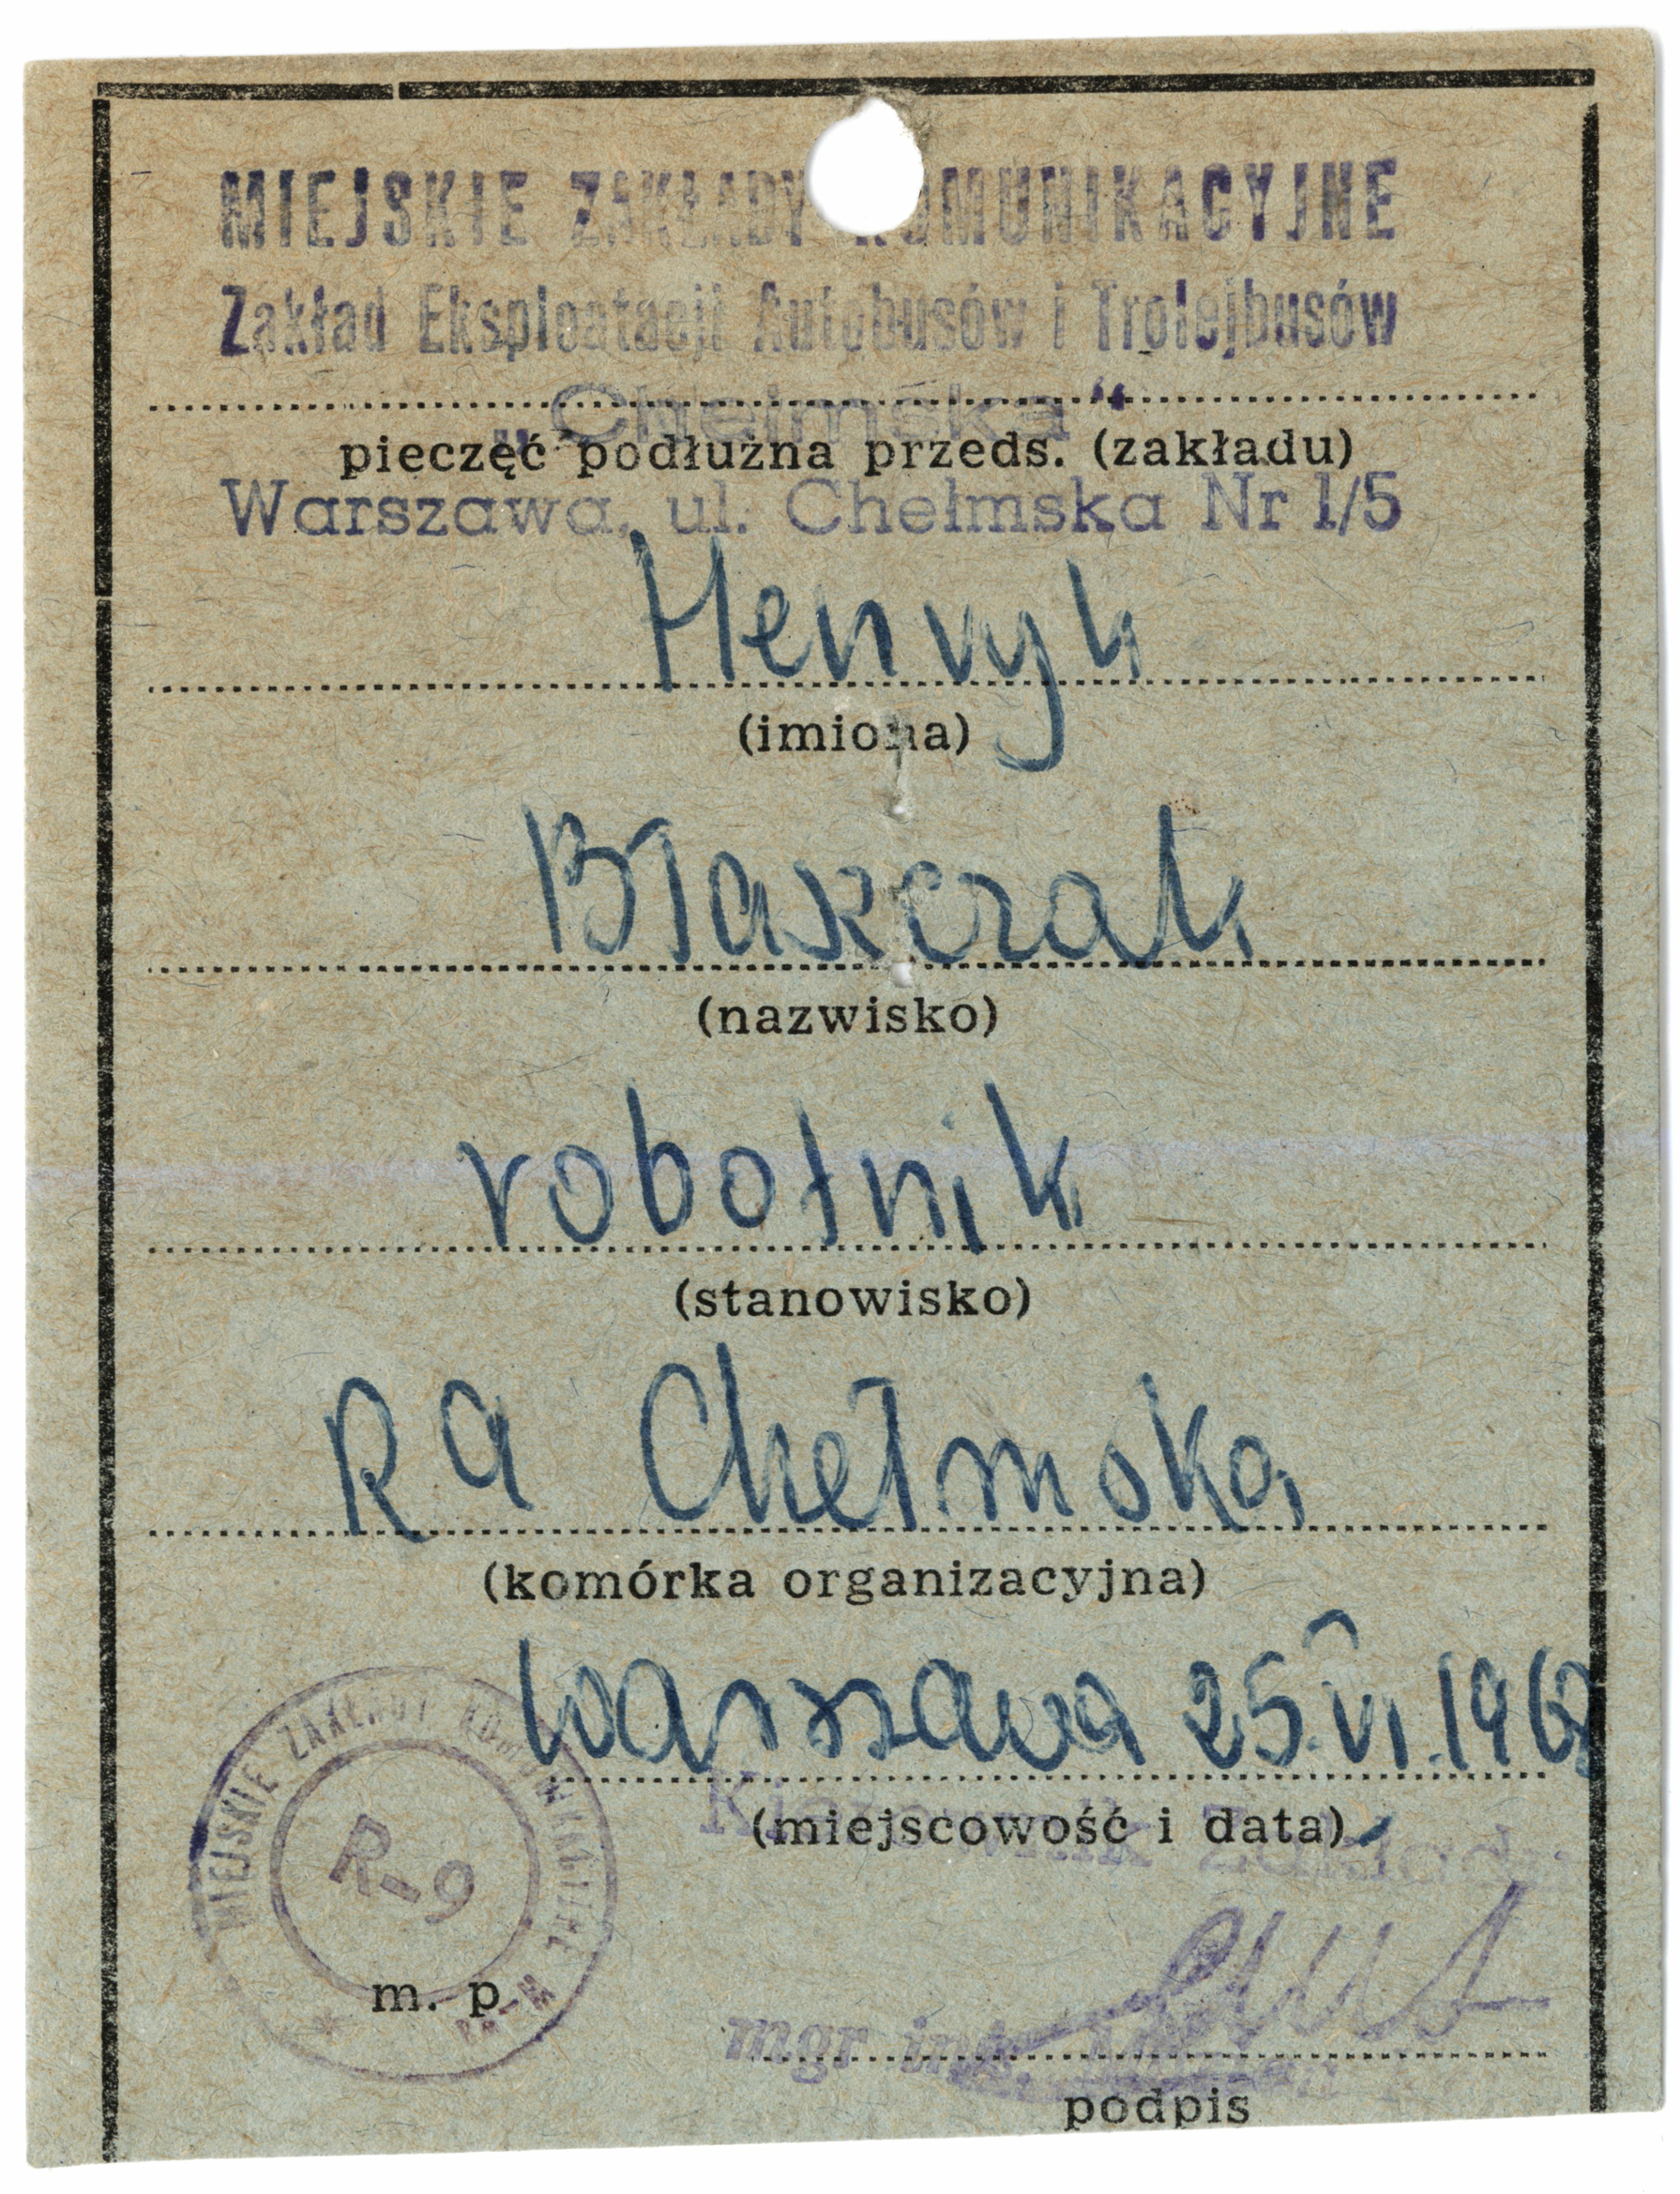 MIEJSKIE ZAKŁADY KOMUNIKACYJNE
Zakład Eksploatacji Autobusów i Trolejbusów
„Chełmska"
pieczęć podłużna przeds. (zakładu)
Warszawa, ul. Chełmska Nr 1/5
Henryk
(imiona)
Błaszczak
(nazwisko)
robotnik
(stanowisko)
Ra Chełmska
(komórka organizacyjna)
Warszawa 25.VI.196
(miejscowość i data)
Kierownik Zakładu
MIEJSKIE ZAKŁADY KOMUNIKACYJNE
R-9
m. p.
mgr inż.
podpis